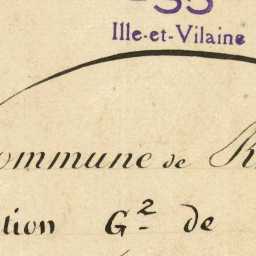 35
Ille-et-Vilaine
ommune de R
tion G² de